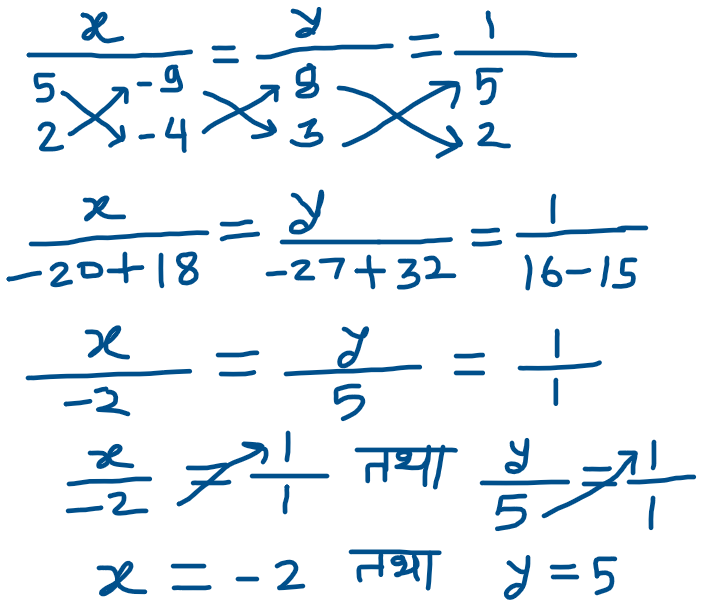 x/ = y/ = 1/
5 -9 8 5
2 -4 3 2
x/(-20+18) = y/(-27+32) = 1/(16-15)
x/-2 = y/5 = 1/1
x/-2 = 1/1 तथा y/5 = 1/1
x = -2 तथा y = 5